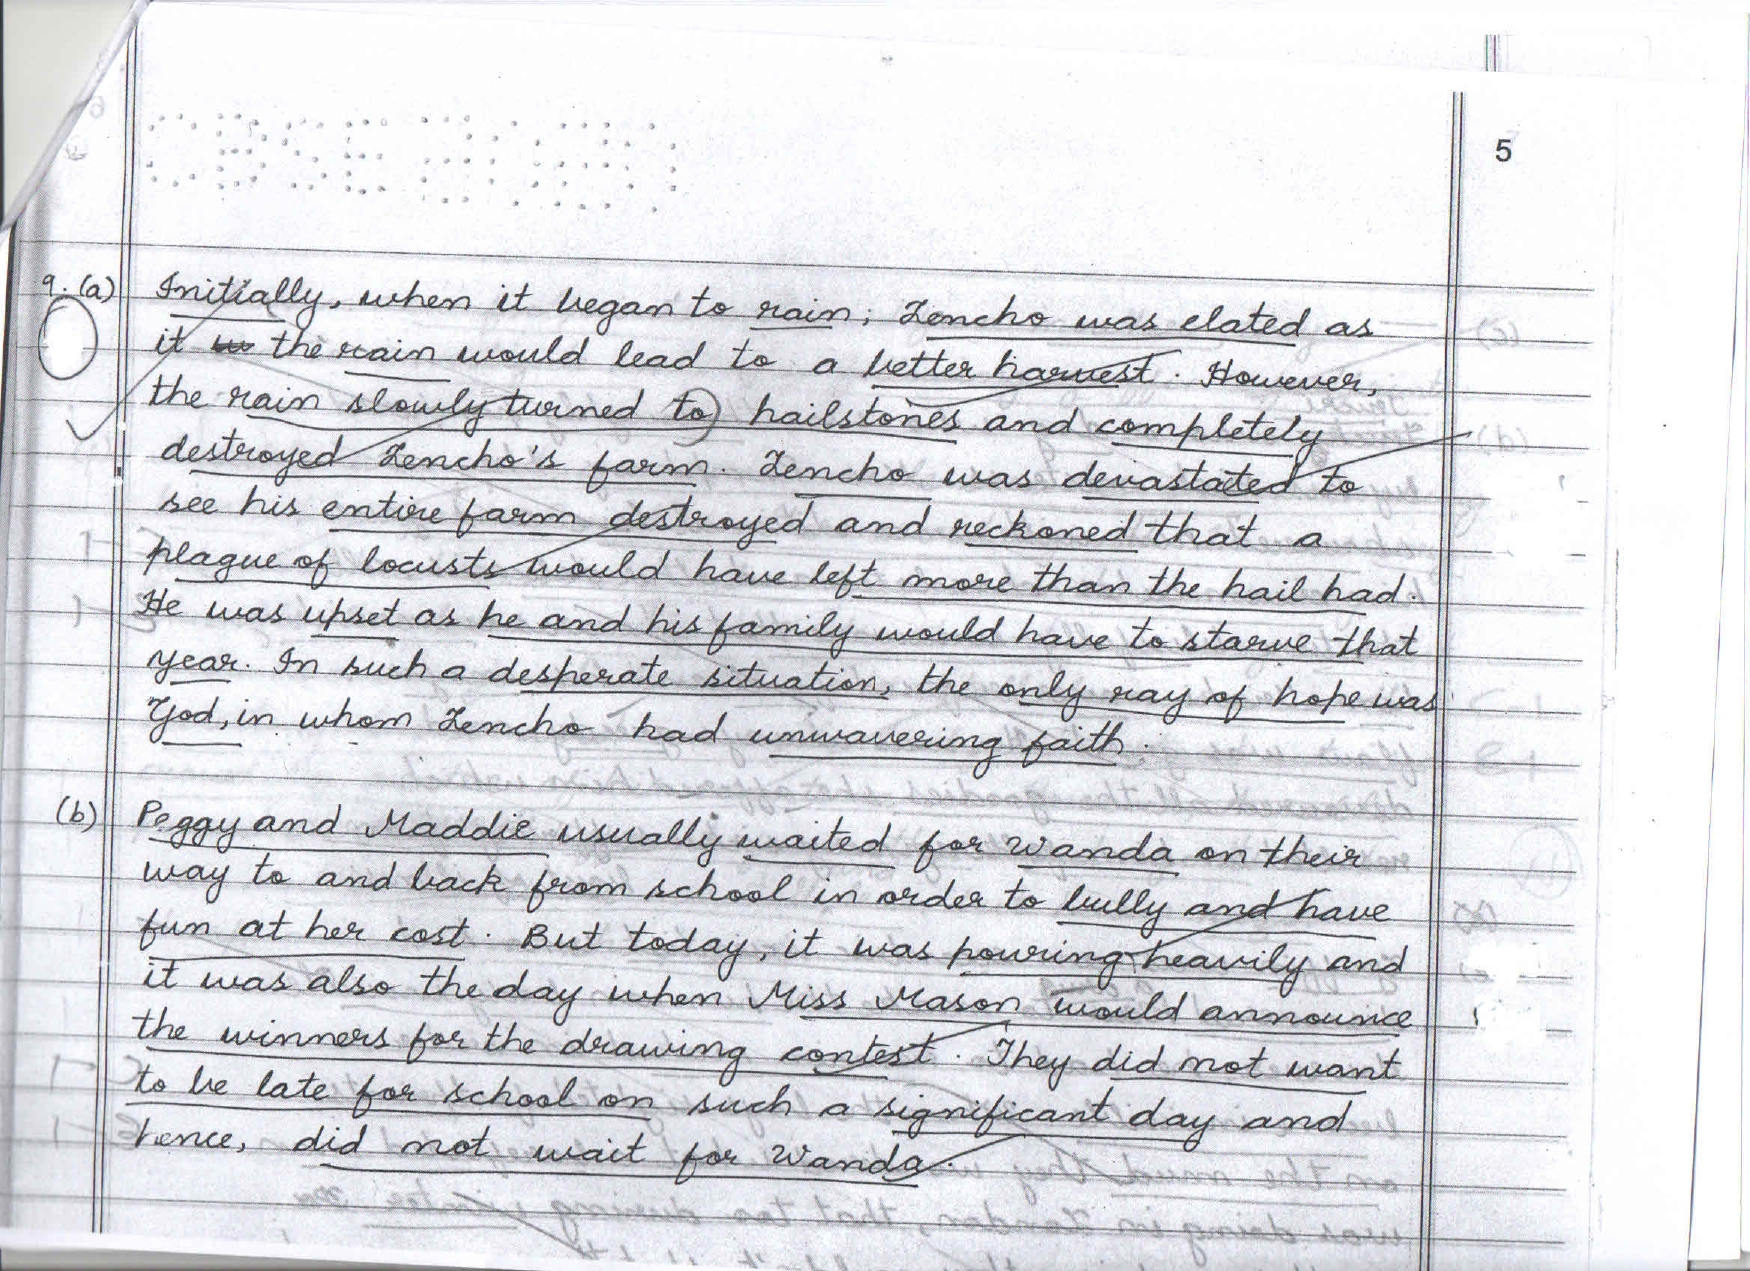 5
9. (a) Initially, when it began to rain; Lencho was elated as
it the rain would lead to a better harvest. However,
the rain slowly turned to hailstones and completely
destroyed Lencho's farm. Lencho was devastated to
see his entire farm destroyed and reckoned that a
plague of locusts would have left more than the hail had.
He was upset as he and his family would have to starve that
year. In such a desperate situation, the only ray of hope was
God, in whom Lencho had unwavering faith.
(b) Peggy and Maddie usually waited for Wanda on their
way to and back from school in order to bully and have
fun at her cost. But today, it was pouring heavily and
it was also the day when Miss Mason would announce
the winners for the drawing contest. They did not want
to be late for school on such a significant day and
hence, did not wait for Wanda.